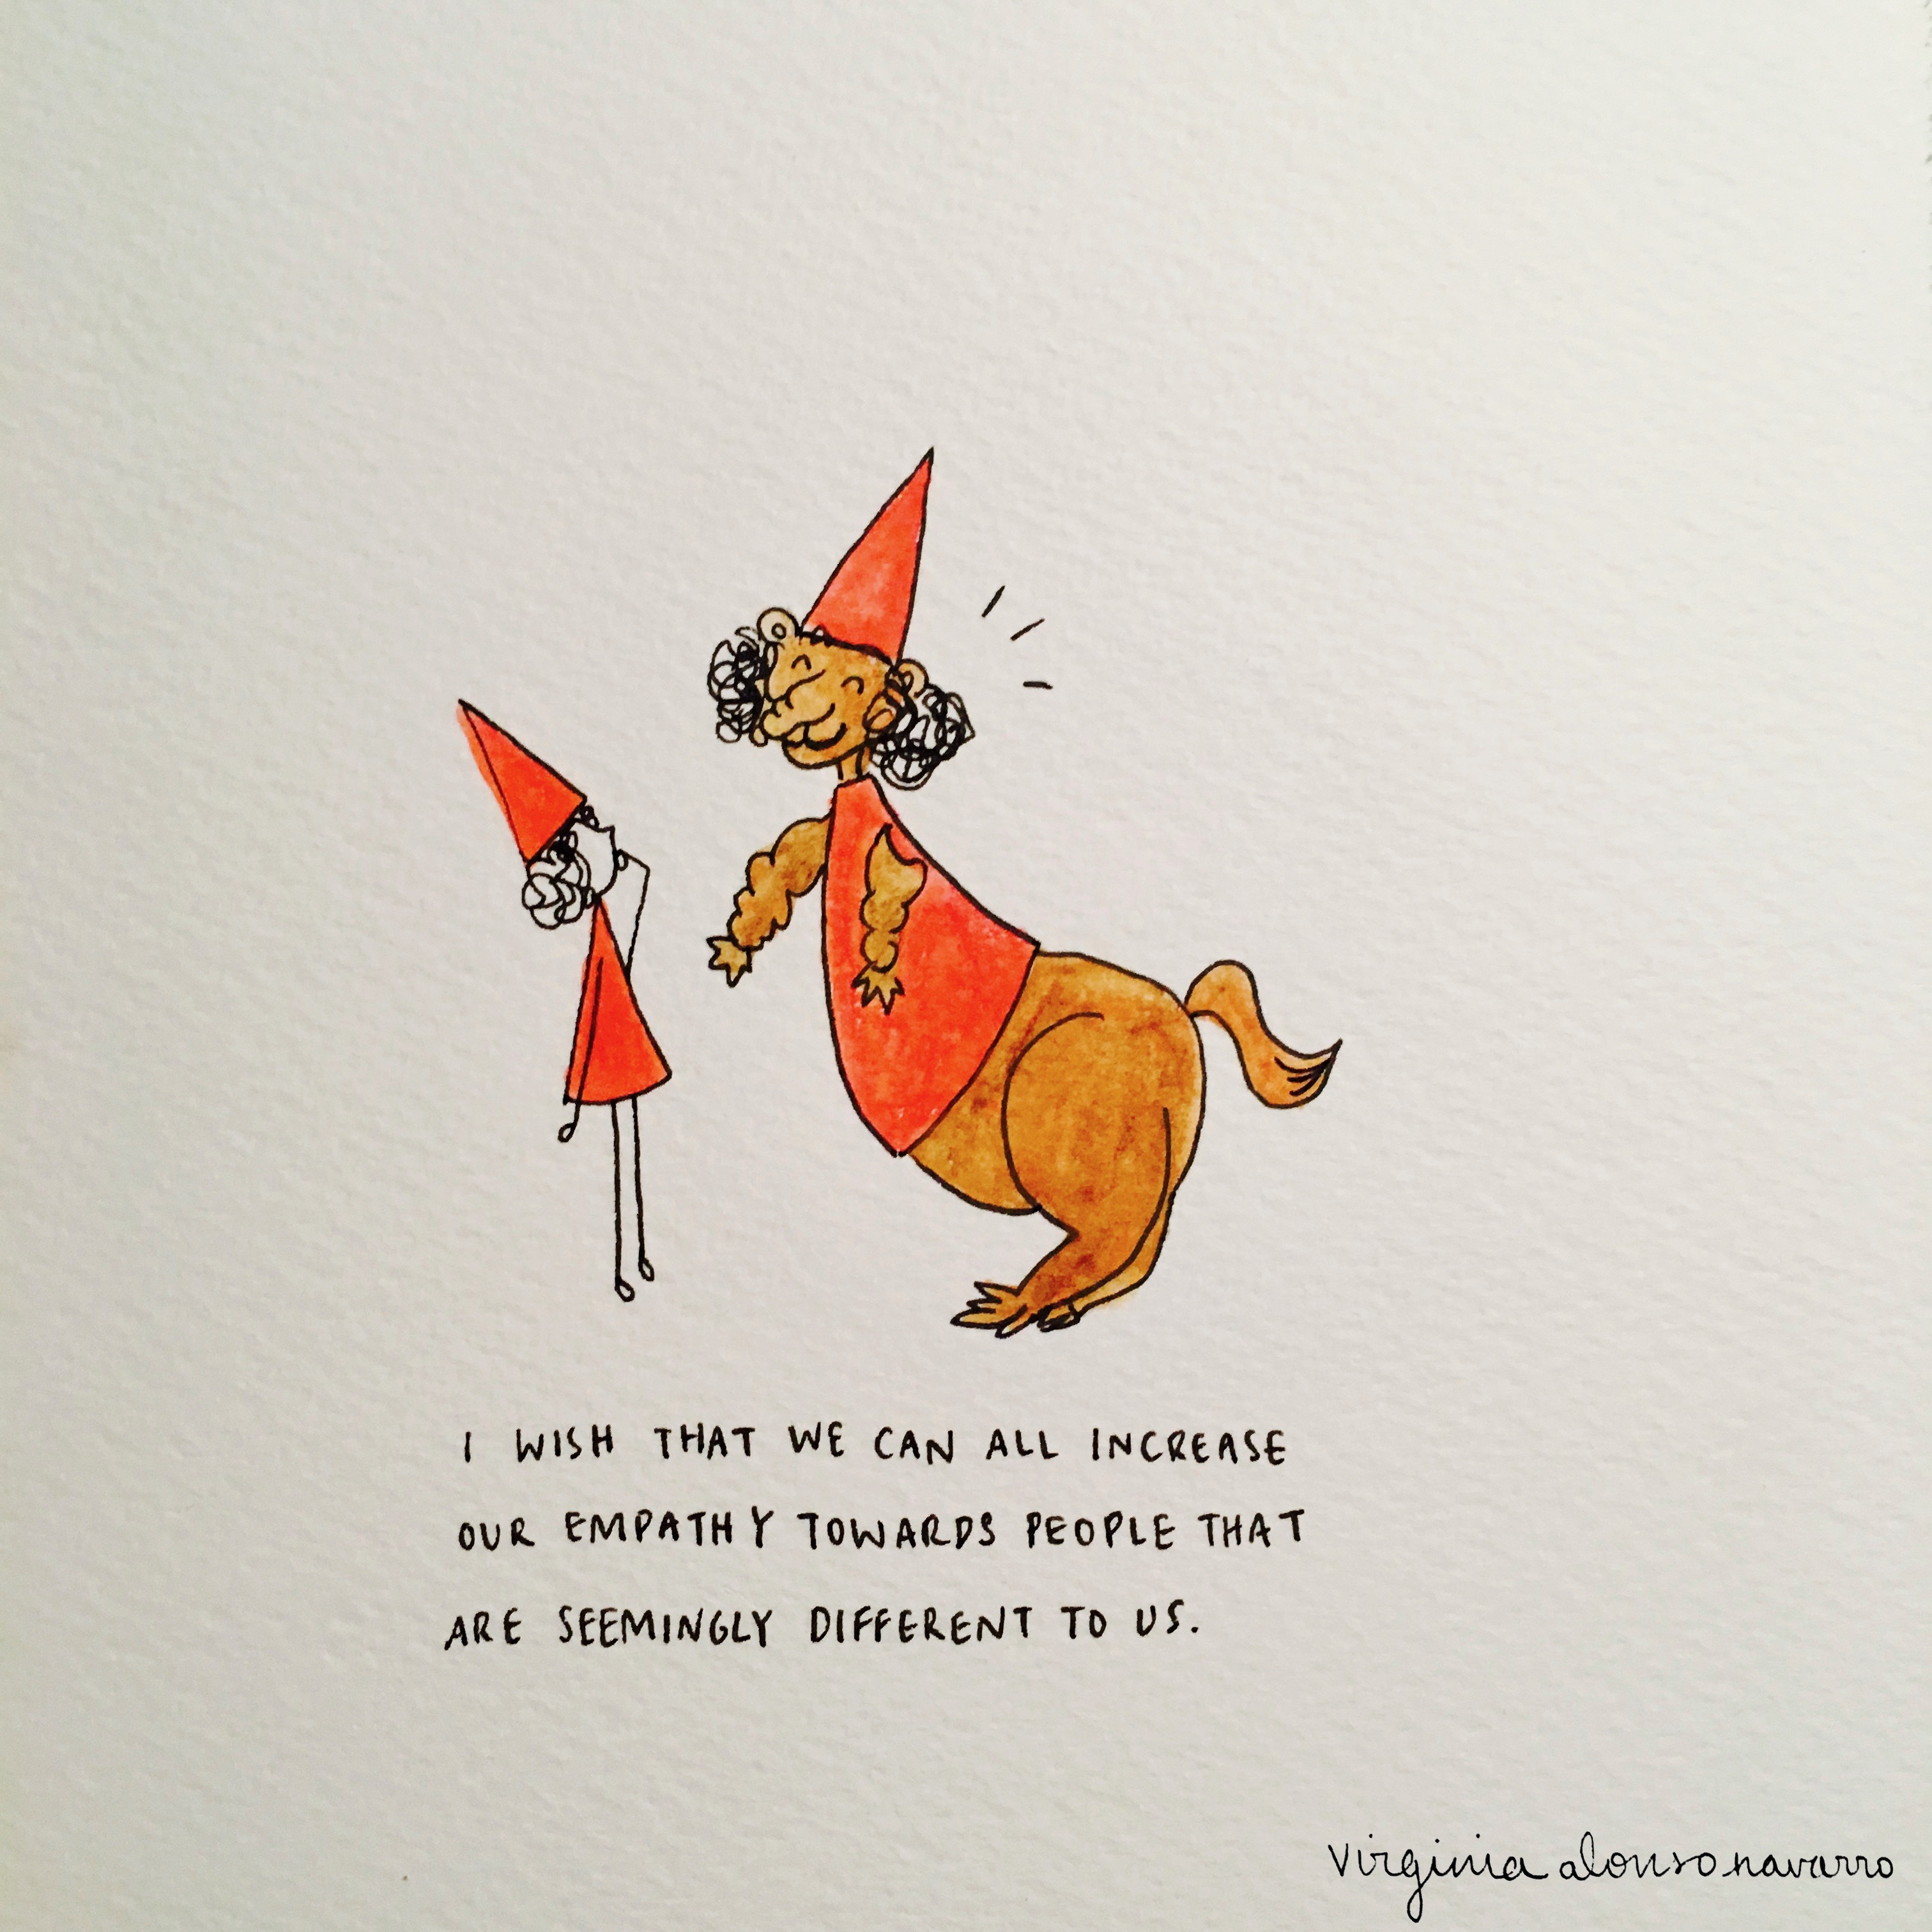 I WISH THAT WE CAN ALL INCREASE
OUR EMPATHY TOWARDS PEOPLE THAT
ARE SEEMINGLY DIFFERENT TO US.
virginia alonso navarro